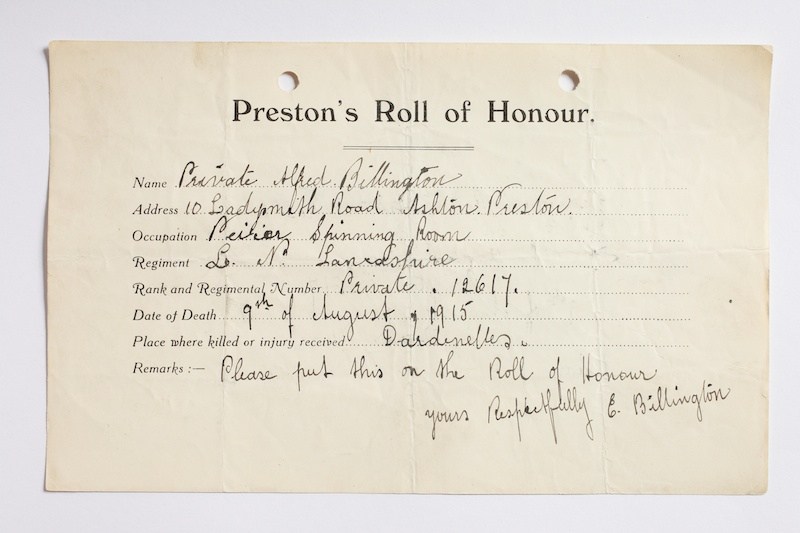 Preston's Roll of Honour.
Name Private Alfred Billington
Address 10 Ladysmith Road Ashton. Preston.
Occupation Peicer Spinning Room
Regiment L. N. Lancashire
Rank and Regimental Number Private . 12617.
Date of Death 9th of August 1915
Place where killed or injury received Dardenelles.
Remarks :— Please put this on the Roll of Honour
yours Respectfully E. Billington